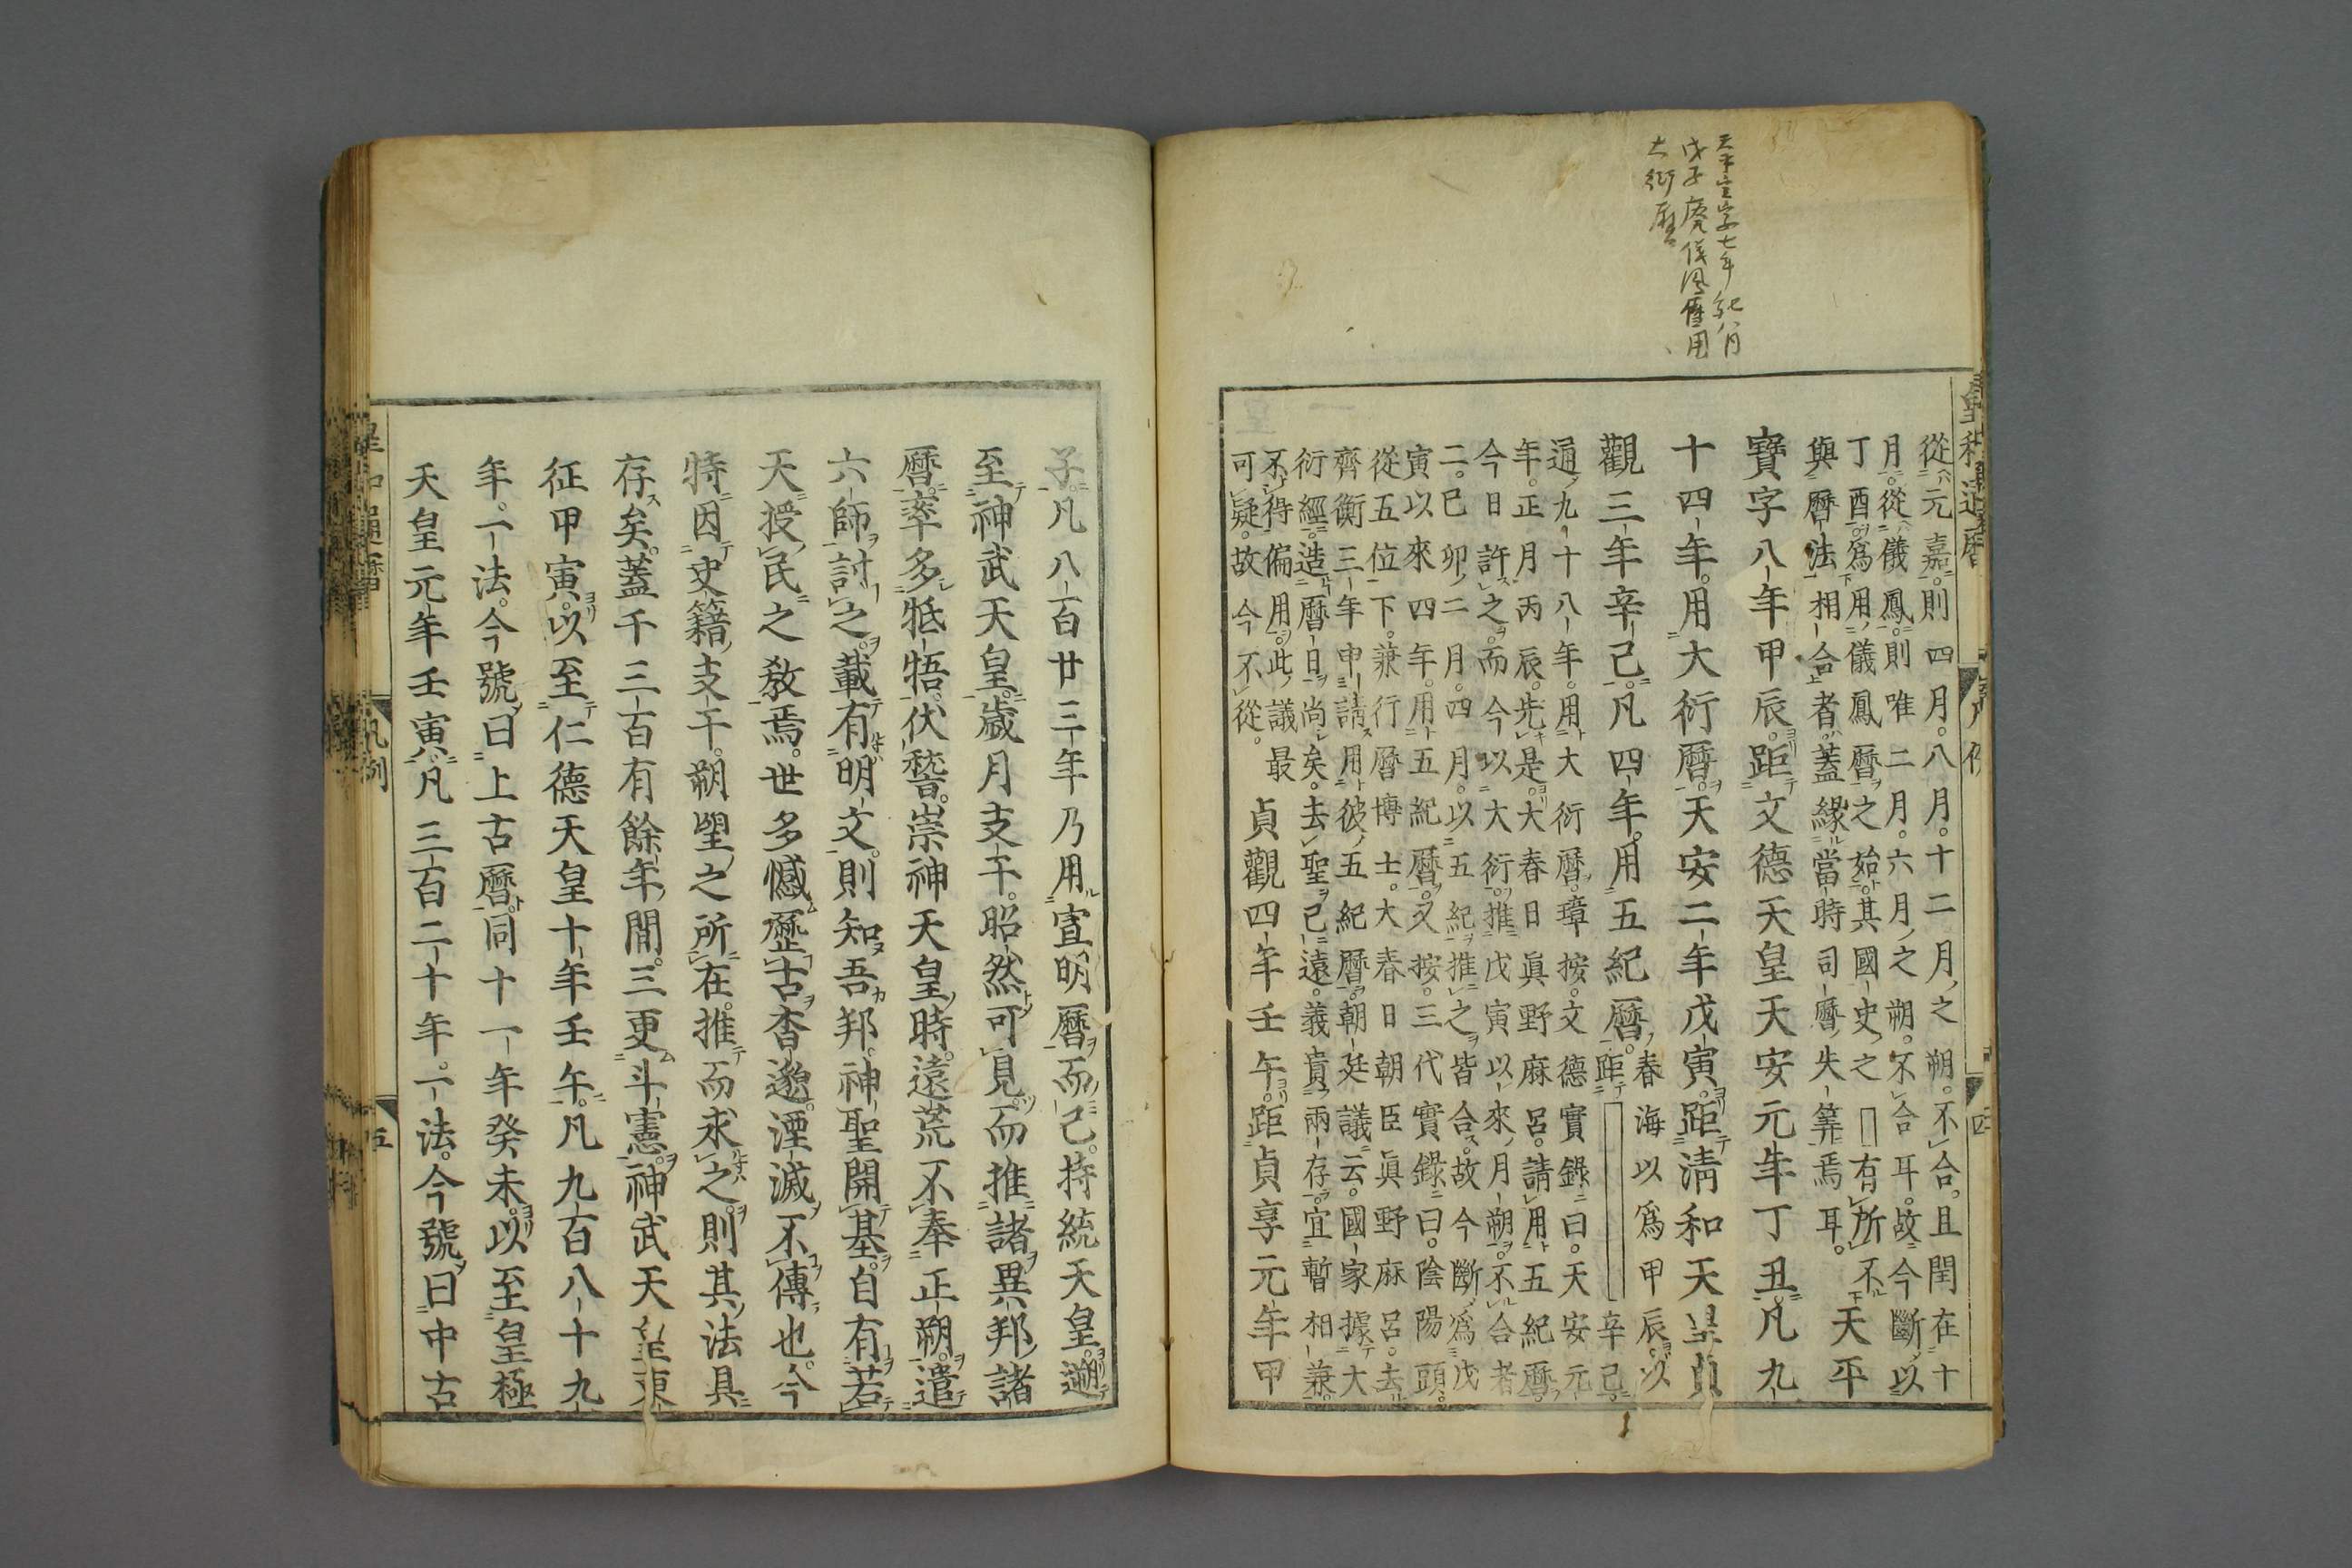 天平宝字七年紀八月
戊子廃儀鳳暦用
大衍暦
從元嘉。則四月。八月。十二月之朔。不合。且閏在十
月。從儀鳳。則唯二月。六月之朔。不合耳。故今斷以
丁酉。爲用儀鳳曆之始。其國史之 有所不
與曆法相合者。蓋緣當時司曆失筭焉耳。
天平
寶字八年甲辰。距文德天皇天安元年丁丑。凡九
十四年。用大衍曆。天安二年戊寅。距淸和天皇貞
觀三年辛己。凡四年。用五紀曆。
春海以爲甲辰。以
距 辛己。
通九十八年。用大衍曆。璋按。文德實錄曰。天安元
年。正月丙辰。先是。大春日眞野麻呂。請用五紀曆。
今日許之。而今以大衍。推戊寅以來月朔。不合者
二。己卯二月。四月。以五紀推之。皆合。故今斷爲戊
寅以來四年。用五紀曆。又按。三代實錄曰。陰陽頭。
從五位下。兼行曆博士。大春日朝臣眞野麻呂。去
齊衡三年申請用彼五紀曆。朝廷議云。國家據大
衍經。造曆日尚矣。去聖已遠。義賁兩存。宜暫相兼。
不得偏用。此議最
可疑。故今不從。
貞觀四年壬午。距貞享元年甲
子。凡八百廿三年乃用宣明曆而己。持統天皇。遡
至神武天皇。歲月支干。昭然可見。而推諸異邦諸
曆。率多牴牾。伏嵇。崇神天皇時。遠荒不奉正朔。遣
六師討之。載有明文。則知吾邦。神聖開基。自有若
天授民之敎焉。世多憾歷古杳邈。湮滅不傳也。今
特因史籍支干。朔望之所在。推而求之。則其法具
存矣。蓋千三百有餘年間。三更斗憲。神武天皇東
征甲寅。以至仁德天皇十年壬午。凡九百八十九
年。一法。今號曰上古曆。同十一年癸未。以至皇極
天皇元年壬寅。凡三百二十年。一法。今號曰中古
凡例
五